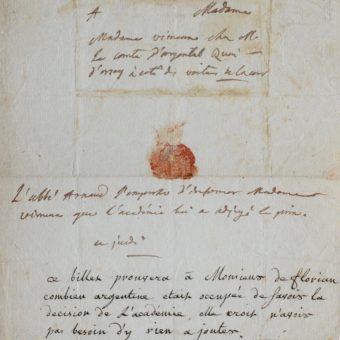 A Madame
Madame vimeux chez M.
le comte d'argental Quai
d'orsay à coté des voitures de la cour
L'abbé Arnaud s'empresse d'informer Madame
vimeux que l'académie lui a adjugé le prix.
ce jeudi
ce billet prouvera à Monsieur de florian
combien argentine était occupée de savoir la
décision de L'académie, elle croit n'avoir
pas besoin d'y rien ajouter.